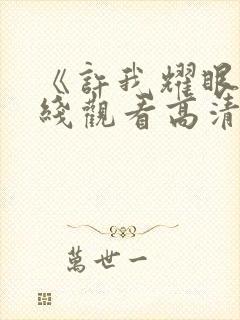 《許我耀眼
綫觀看高清
萬世一